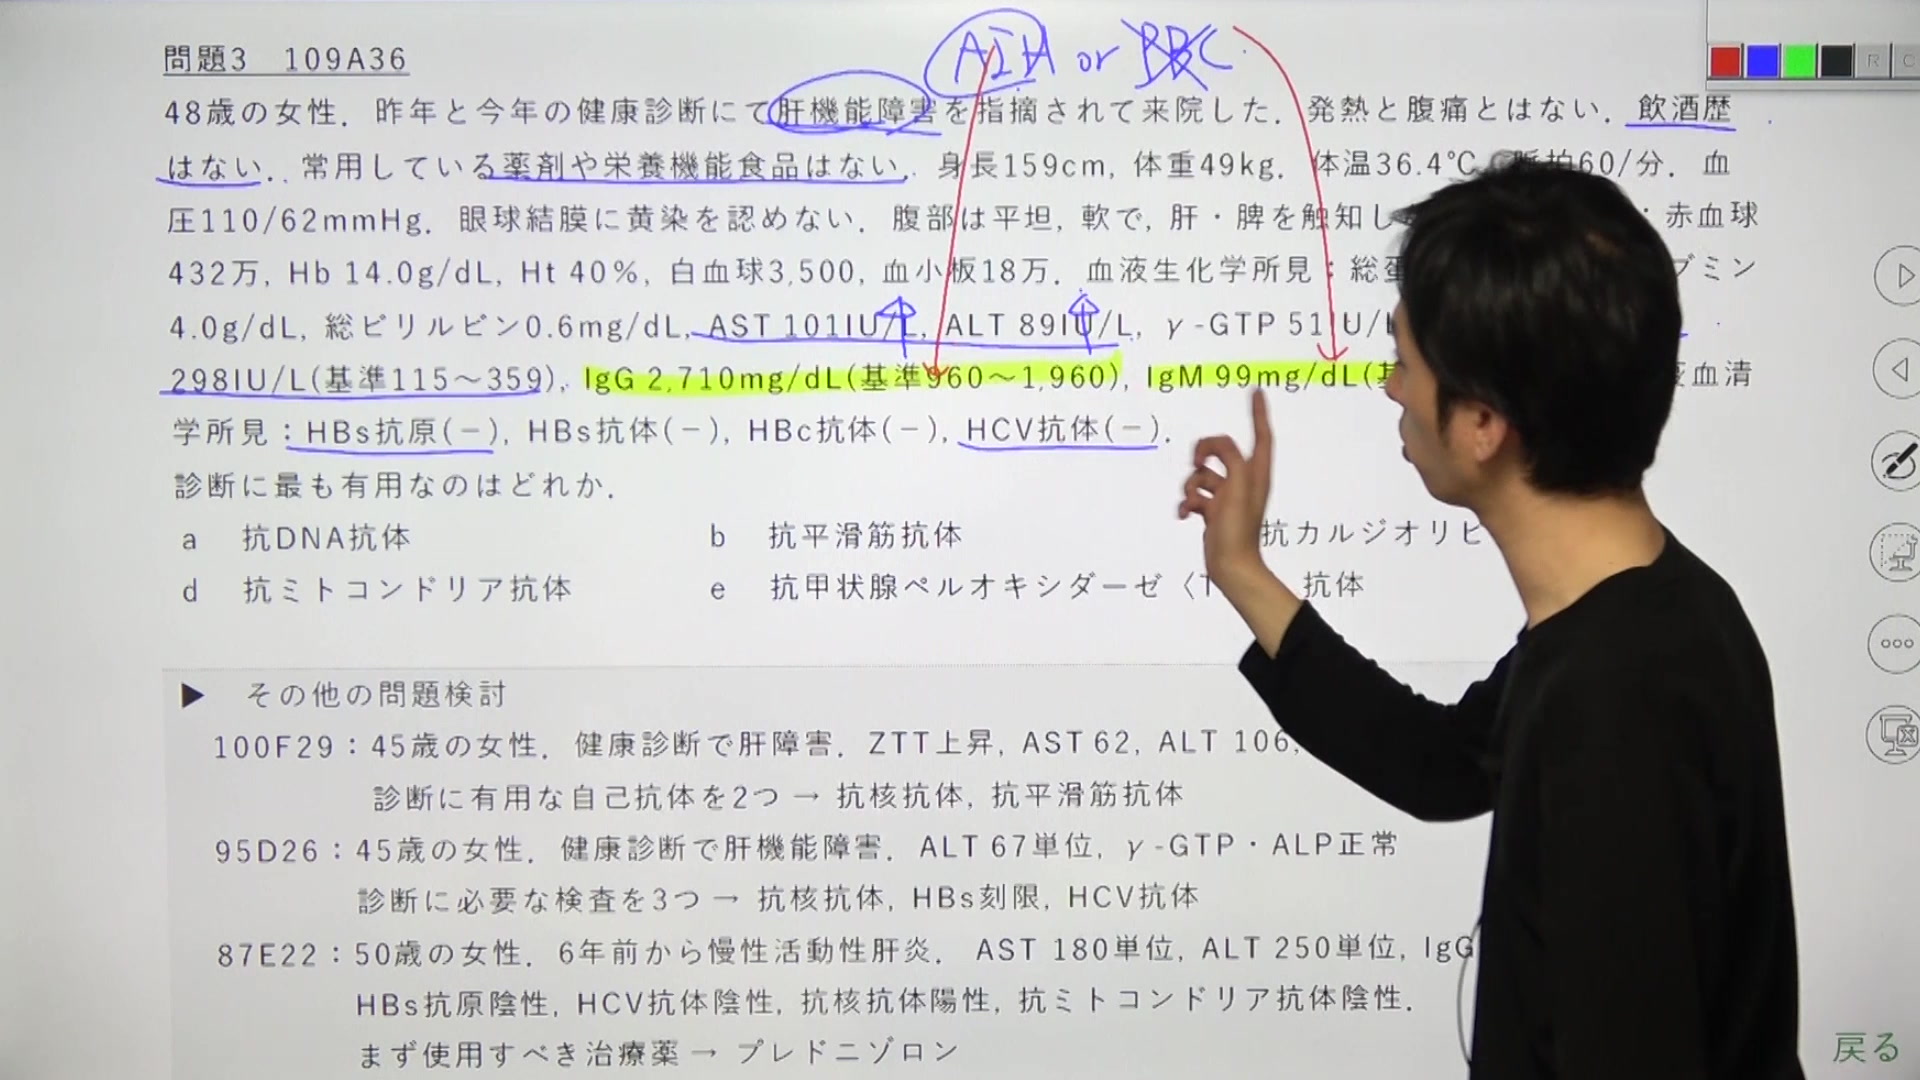 AIH or PBC
問題3 109A36
48歳の女性．昨年と今年の健康診断にて肝機能障害を指摘されて来院した．発熱と腹痛とはない．飲酒歴
はない．常用している薬剤や栄養機能食品はない．身長159cm, 体重49kg．体温36.4℃, 脈拍60/分．血
圧110/62mmHg．眼球結膜に黄染を認めない．腹部は平坦, 軟で, 肝・脾を触知し ：赤血球
432万, Hb 14.0g/dL, Ht 40%, 白血球3,500, 血小板18万．血液生化学所見：総蛋 ブミン
4.0g/dL, 総ビリルビン0.6mg/dL, AST 101IU/L, ALT 89IU/L, γ-GTP 51IU/L
298IU/L(基準115～359), IgG 2,710mg/dL(基準960～1,960), IgM 99mg/dL(基 血清
学所見：HBs抗原(－), HBs抗体(－), HBc抗体(－), HCV抗体(－)．
診断に最も有用なのはどれか．
a 抗DNA抗体 b 抗平滑筋抗体 抗カルジオリピ
d 抗ミトコンドリア抗体 e 抗甲状腺ペルオキシダーゼ〈T 抗体
▶ その他の問題検討
100F29：45歳の女性．健康診断で肝障害．ZTT上昇, AST 62, ALT 106,
診断に有用な自己抗体を2つ → 抗核抗体, 抗平滑筋抗体
95D26：45歳の女性．健康診断で肝機能障害．ALT 67単位, γ-GTP・ALP正常
診断に必要な検査を3つ → 抗核抗体, HBs刻限, HCV抗体
87E22：50歳の女性．6年前から慢性活動性肝炎．AST 180単位, ALT 250単位, IgG
HBs抗原陰性, HCV抗体陰性, 抗核抗体陽性, 抗ミトコンドリア抗体陰性．
まず使用すべき治療薬 → プレドニゾロン
R C
戻る